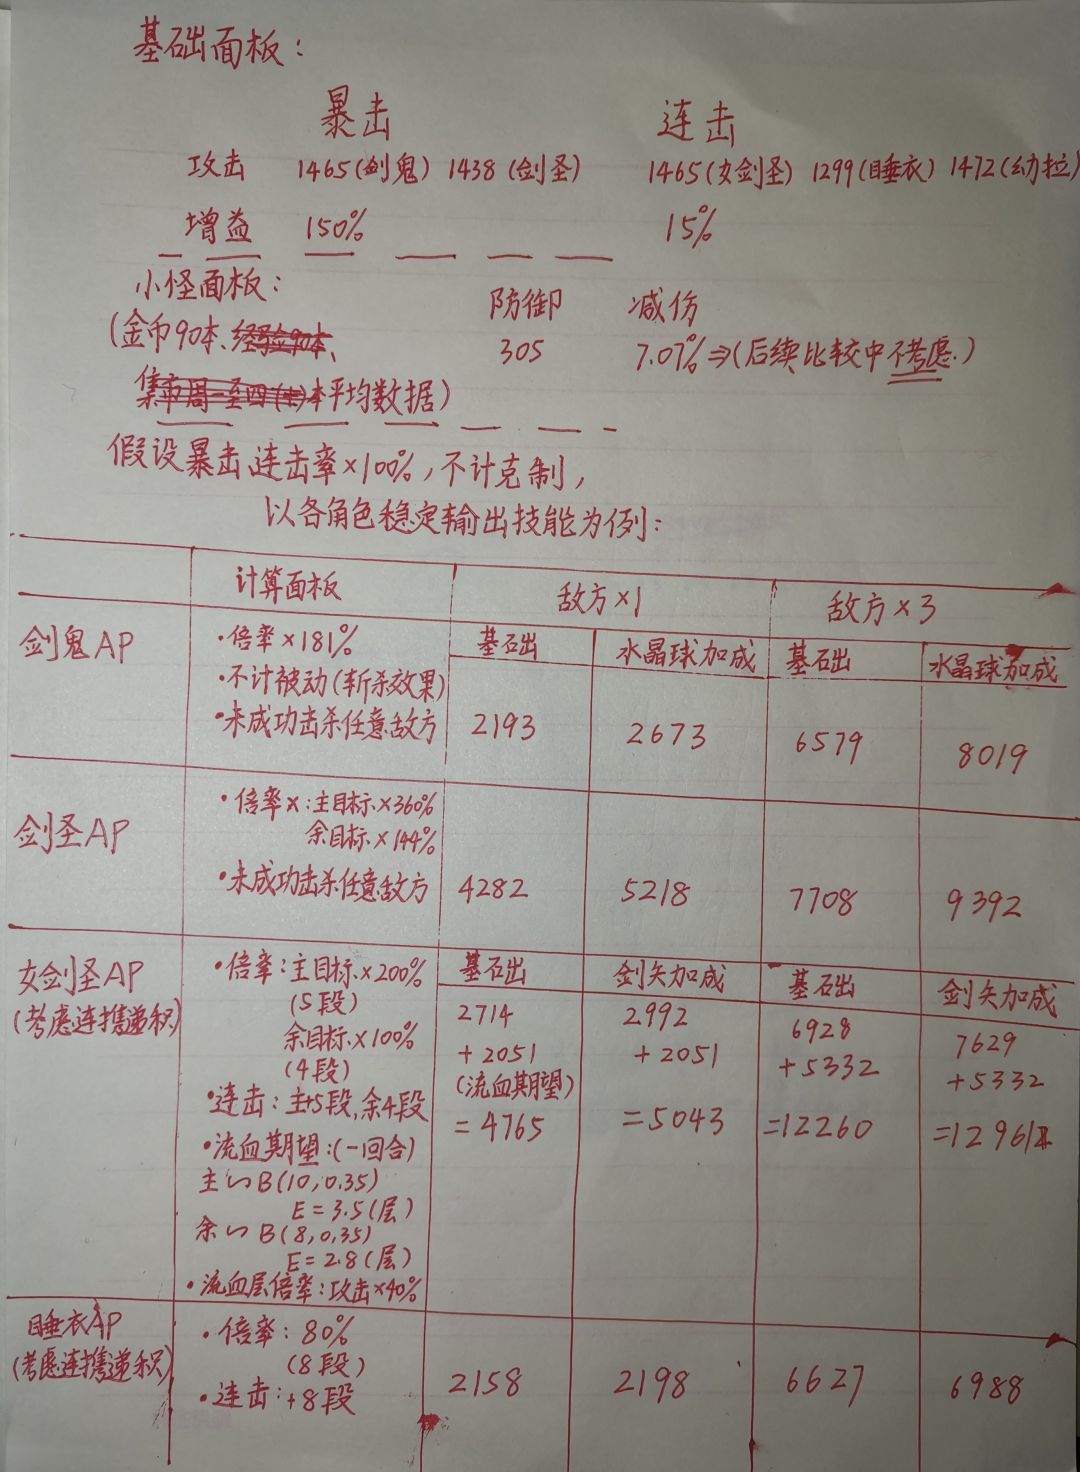 基础面板：
暴击 连击
攻击 1465(剑鬼) 1438(剑圣) 1465(女剑圣) 1299(睡衣) 1472(幼拉)
增益 150% 15%
小怪面板： 防御 减伤
(金币90本、经验90本、 305 7.07%⇒(后续比较中不考虑.)
集市周一至四(士)本平均数据)
假设暴击、连击率×100%,不计克制,
以各角色稳定输出技能为例：
计算面板 敌方×1 敌方×3
剑鬼AP
·倍率×181%
·不计被动(斩杀效果)
·未成功击杀任意敌方
基础 水晶球加成 基础 水晶球加成
2193 2673 6579 8019
剑圣AP
·倍率×:主目标×360%
余目标×144%
·未成功击杀任意敌方
4282 5218 7708 9392
女剑圣AP
(考虑连携递积)
·倍率:主目标×200%
(5段)
余目标×100%
(4段)
·连击:主+5段,余4段
·流血期望:(一回合)
主∽B(10,0.35)
E=3.5(层)
余∽B(8,0,35)
E=2.8(层)
·流血层倍率:攻击×40%
基础 剑矢加成 基础 剑矢加成
2714 2992 6928 7629
+2051 +2051 +5332 +5332
(流血期望)
=4765 =5043 =12260 =12961
睡衣AP
(考虑连携递积)
·倍率:80%
(8段)
·连击:+8段
2158 2198 6627 6988